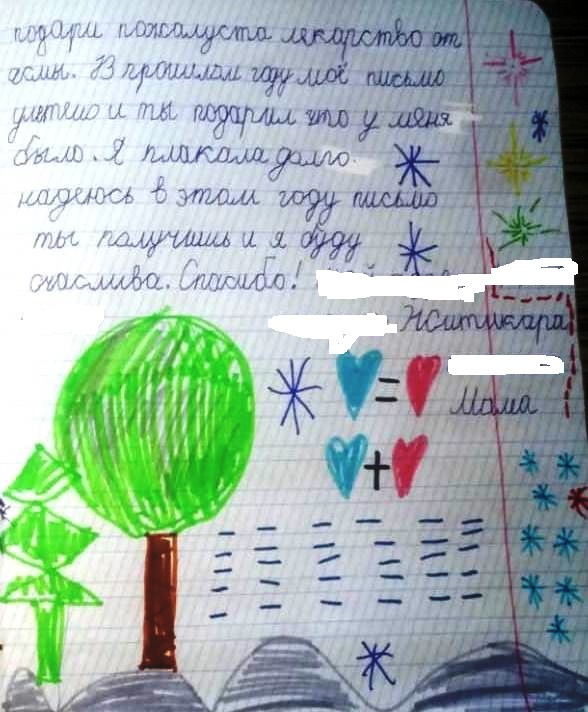 подари пожалуста лекарство от
асмы. В прошлом году моё письмо
улетело и ты подарил что у меня
было. Я плакала долго.
надеюсь в этом году письмо
ты получишь и я буду
счаслива. Спасибо!
Житикара
Мама